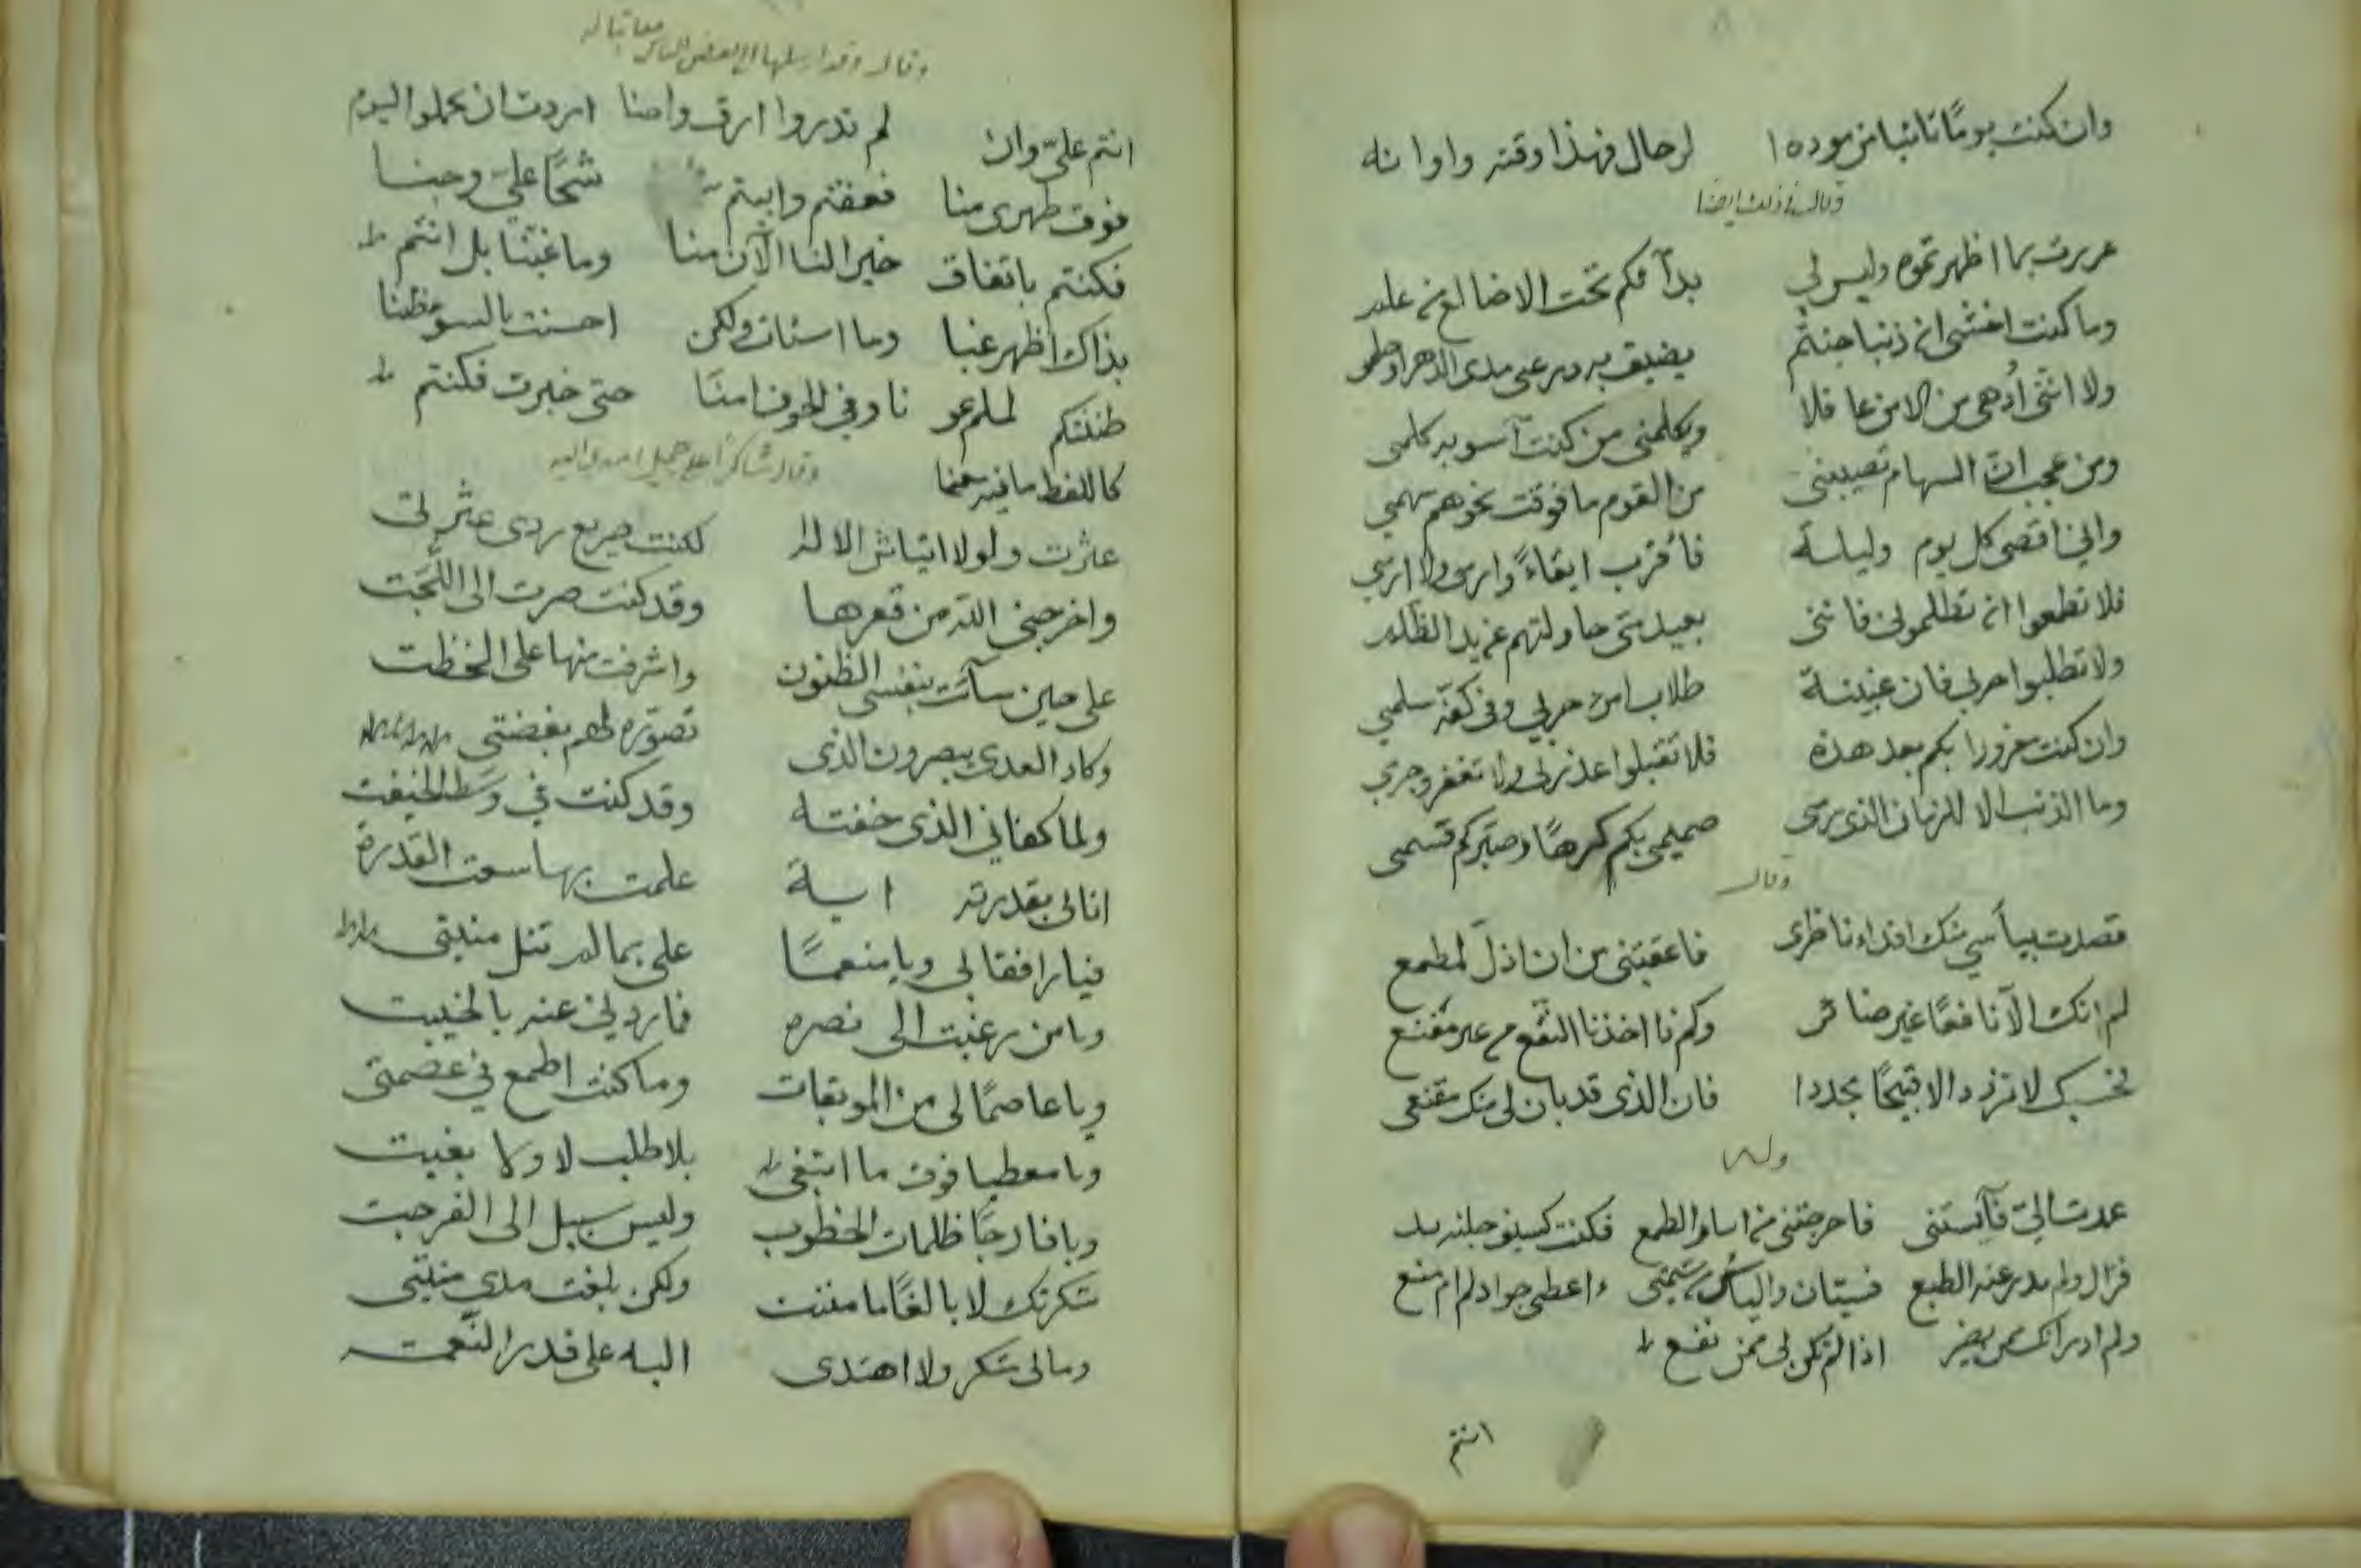 وان كنت يومًا تائبا من مودة لرحال فهذا وقته واوانه
وقال في ذلك ايضا
غررت بما اظهرتموه وليس لي بدآ فكم تحت الاضالع من علم
وما كنت اخشى ان ذنبا جنيتم يضيق به ذرعى مدى الدهر او حلمى
ولا اننى أدهى من الامن غافلا ويكلمنى من كنت آسو به كلمى
ومن عجب ان السهام تصيبنى من القوم ما فوقت نحوهم سهمي
واني اقصى كل يوم وليلة فأقرب ابقاءً وارمى ولا ارمي
فلا تطمعوا ان تظلموني فاننى بعيد متى حاولتم عن يد الظلم
ولا تطلبوا حربي فان غبينة طلاب امرئ حربي وفي كفه سلمي
وان كنت مغرورا بكم بعد هذه فلا تقبلوا عذري ولا تغفروا جرمي
وما الذنب الا للزمان الذى رمى صميمى بكم كرهًا وصيركم قسمى
وقال
قصدت بيأسي منك اقذاء ناظرى فاعقبتنى من ان اذل لمطمع
لم انك الا نافعًا غير ضائر وكم ذا اخذنا النفع من غير مقنع
فحسبك لا تزدد الا قبيحًا مجددا فان الذى قد بان لى منك مقنعى
وله
عدت الي فآيستنى فاخرجتنى من اسار الطمع فكنت كسيف جلته يد
فزال ولم يدر عنه الطبع فسيان والياس من شيمتى أعطى جواد لم ام منع
ولم ادر انك ممن يضر اذا لم تكن لى ممن نفع
انتم
وقال وقد ارسلها الى بعض الناس معاتبا له
انتم علي وان لم تدروا ارق واحنا اردت ان تحملوا اليوم
فوق ظهرى منا فعفتم وابيتم شحًا علي وجبنا
فكنتم باتفاق خيرا لنا الآن منا وما غبنا بل انتم
بذاك اظهر غبنا وما اسأت ولكن احسنت بالسوء ظنا
ظننتكم لملم عو نا وفي الخوف امنا حتى خبرت فكنتم
كاللفظ ما فيه معنا
وقال شاكرا على جميل اسدى اليه
عثرت ولولا انتياش الاله لكنت صريع ردى عثرتى
واخرجنى الله من قعرها وقد كنت صرت الى اللجت
على حين سآت بنفسى الظنون واشرفت منها على الخطت
وكاد العدى يبصرون الذى تصوره لهم بغضتى
ولما كفاني الذى خفته وقد كنت في وسط الخيفت
اتانى بقدرته اية علمت بها سعت القدرة
فيا رافقا لى ويا منعمًا على بما لم تنل منيتى
ويا من رغبت الى نصره فما ردني عنه بالخيبت
ويا عاصمًا لى من الموبقات وما كنت اطمع في عصمتى
ويا معطيا فوق ما ابتغى بلا طلب لا ولا بغيت
ويا فارجًا ظلمات الخطوب وليس سبيل الى الفرجت
شكرتك لا بالغًا ما مننت ولكن بلغت مدى منتى
ومالى شكر ولا اهتدى اليه على قدر النعمت